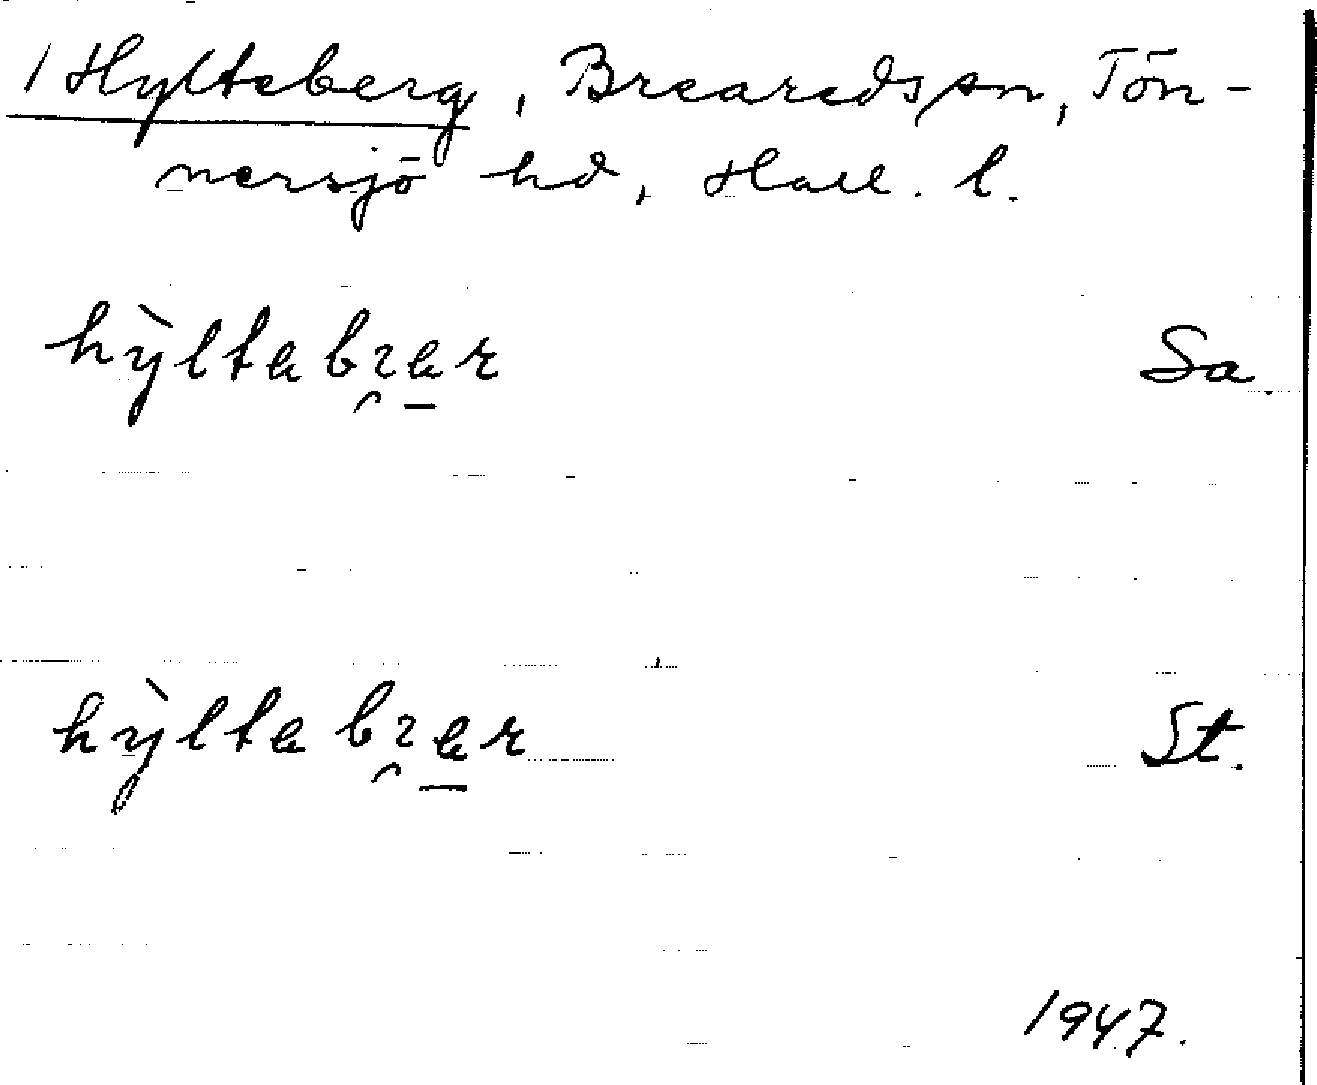 / Hylteberg, Breareds sn, Tön-
nersjö hd, Hall. l.
hỳltabɿ̯a̱r Sa.
hỳltabɿ̯a̱r St.
1947.